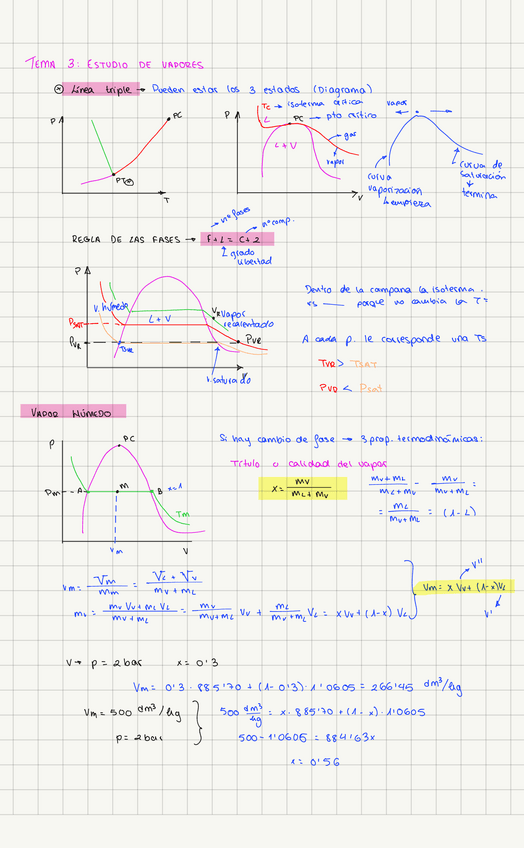 TEMA 3: ESTUDIO DE VAPORES
⊛ Línea triple → Pueden estar los 3 estados (Diagrama)
P
PC
PT ⊛
T
P
Tc → isoterma crítica
PC → pto crítico
L
L + V
gas
vapor
V
vapor
curva vaporización
empieza
curva de saturación
termina
REGLA DE LAS FASES → F + L = C + 2
nº fases
nº comp.
grado libertad
P
V. húmedo
L + V
VR Vapor recalentado
PSAT
PVR
TSAR
PVR
V. saturado
V
Dentro de la campana la isoterma
es — porque no cambia la Tª
A cada p. le corresponde una Ts
TVR > TSAT
PVR < PSAT
VAPOR HÚMEDO
P
PC
Pm
A
M
B x=1
Tm
Vm
V
Si hay cambio de fase → 3 prop. termodinámicas:
Título o calidad del vapor
x = mv / mL + mv
mv + mL / mL + mv - mv / mv + mL =
= mL / mv + mL = (1 - L)
vm = Vm / mm = VL + Vv / mv + mL
mv = mv Vv + mL VL / mv + mL = mv / mv + mL Vv + mL / mv + mL VL = x Vv + (1 - x) VL
V''
Vm = x Vv + (1-x) VL
V'
V → p = 2 bar x = 0'3
Vm = 0'3 · 885'70 + (1 - 0'3) · 1'0605 = 266'45 dm³/kg
Vm = 500 dm³/kg
p = 2 bar
500 dm³/kg = x · 885'70 + (1 - x) · 1'0605
500 - 1'0605 = 884'63x
x = 0'56